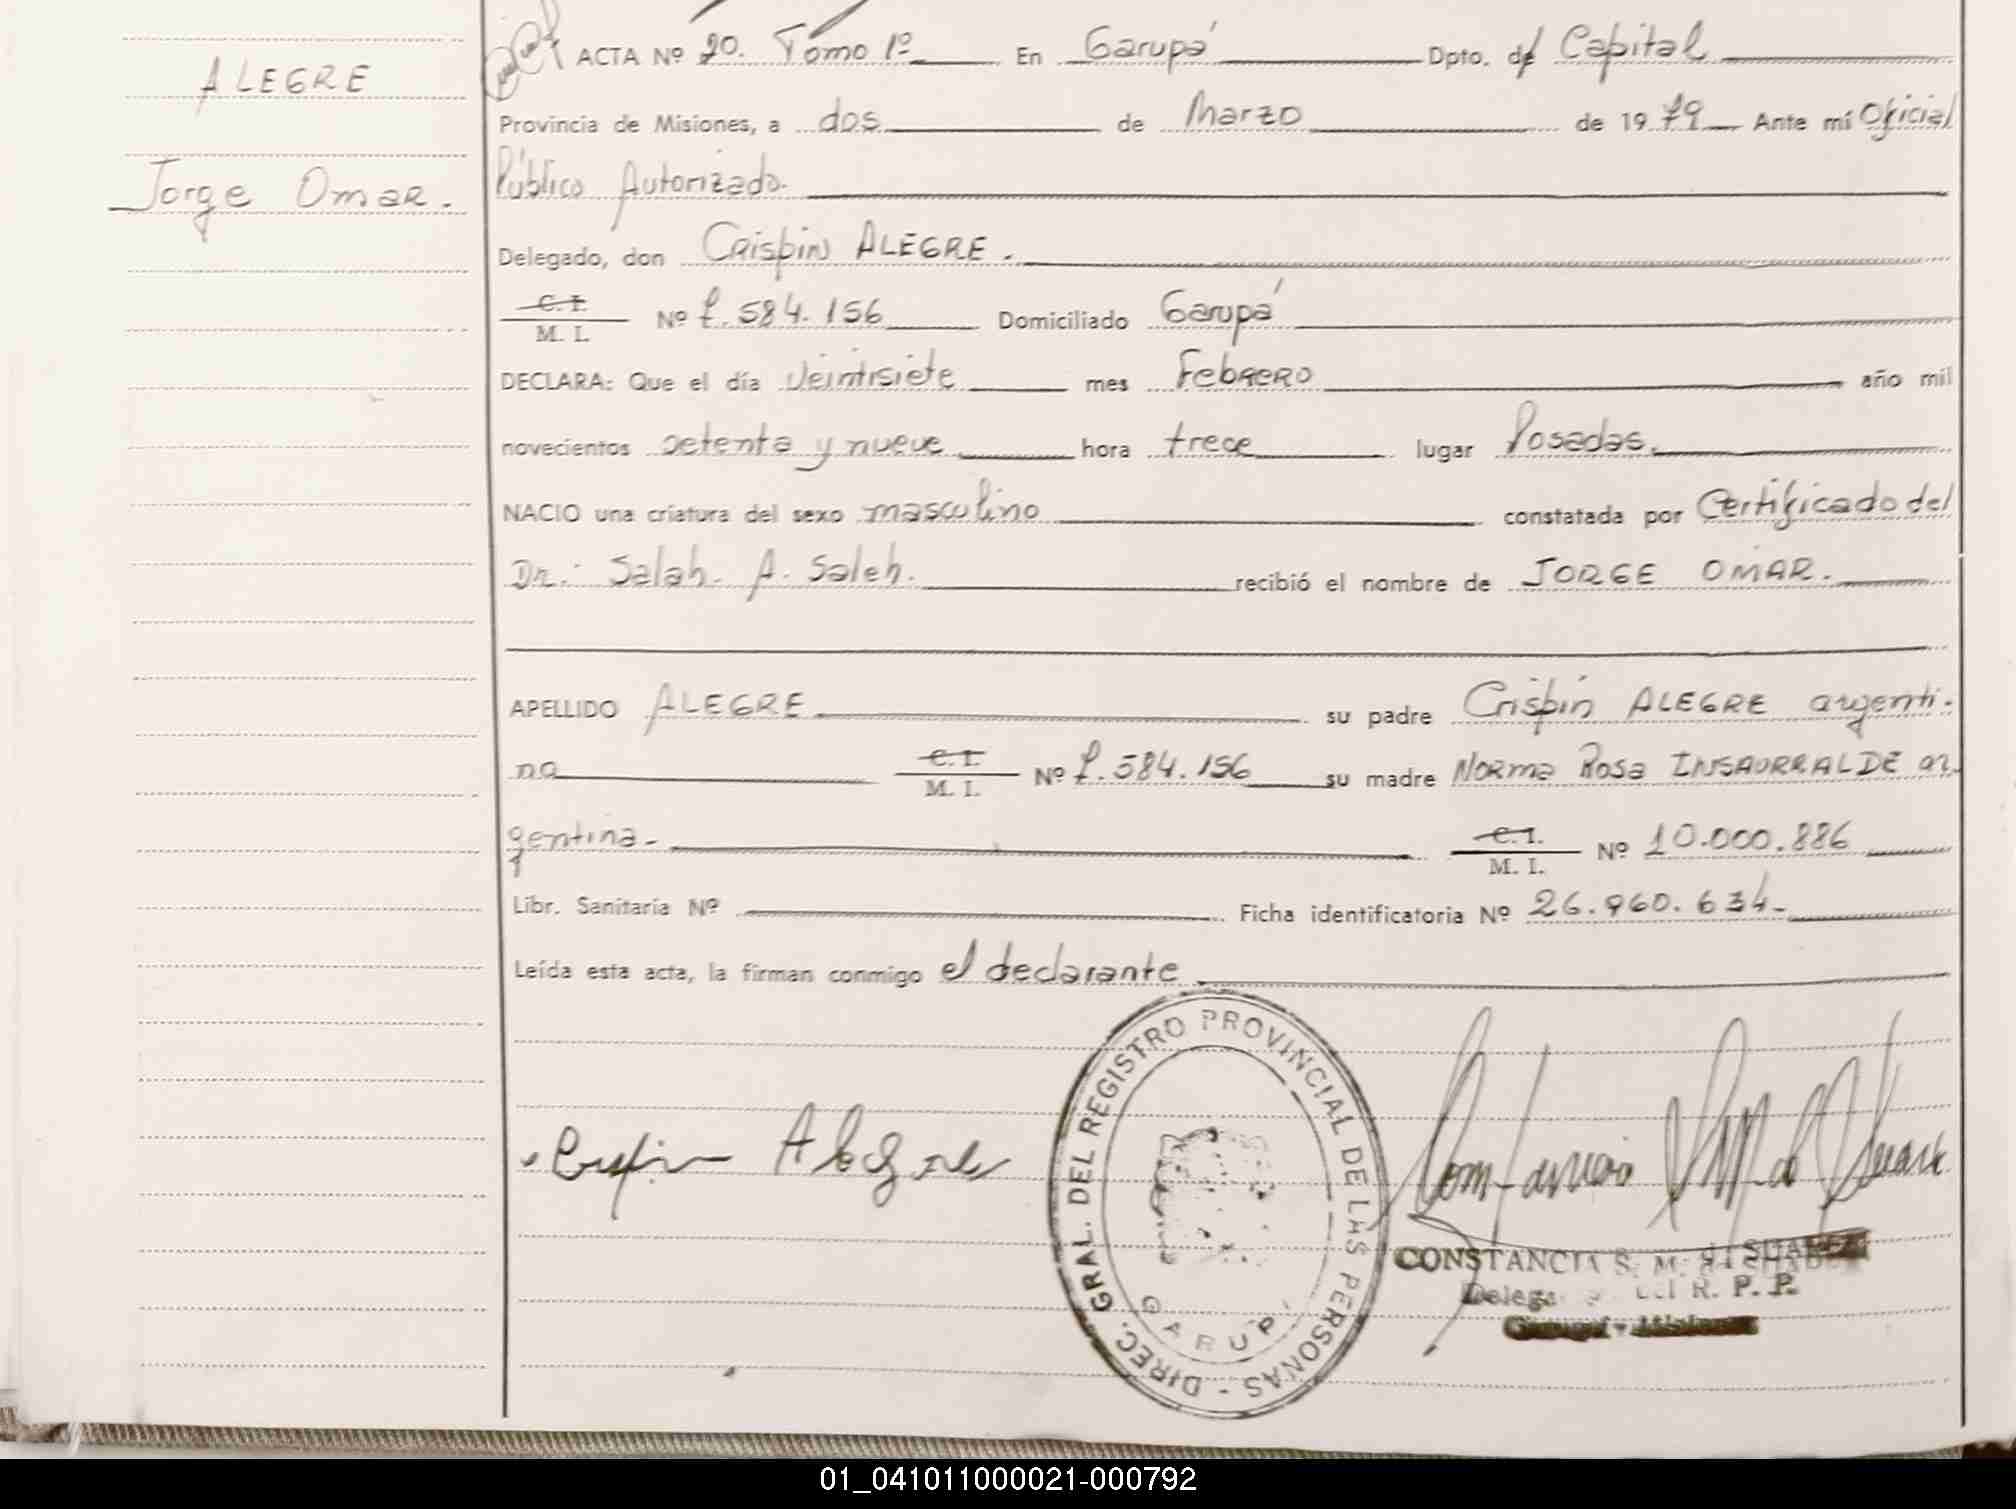 ALEGRE
Jorge Omar.
ACTA Nº 20. Tomo 1º En Garupá Dpto. de Capital
Provincia de Misiones, a dos de Marzo de 1979 Ante mí Oficial
Público Autorizado.
Delegado, don Crispin ALEGRE.
C. I.
M. I. Nº 7.584.156 Domiciliado Garupá
DECLARA: Que el día veintisiete mes Febrero año mil
novecientos setenta y nueve hora trece lugar Posadas.
NACIO una criatura del sexo masculino constatada por Certificado del
Dr. Salah. A. Saleh. recibió el nombre de JORGE OMAR.
APELLIDO ALEGRE su padre Crispin ALEGRE argenti-
no C. I.
M. I. Nº 7.584.156 su madre Norma Rosa INSAURRALDE ar-
gentina- C. I.
M. I. Nº 10.000.886
Libr. Sanitaria Nº Ficha identificatoria Nº 26.960.634-
Leída esta acta, la firman conmigo el declarante
Crispin Alegre
DIREC. GRAL. DEL REGISTRO PROVINCIAL DE LAS PERSONAS -
GARUPA
CONSTANCIA S. M. de SUAREZ
R. P. P.
01_041011000021-000792